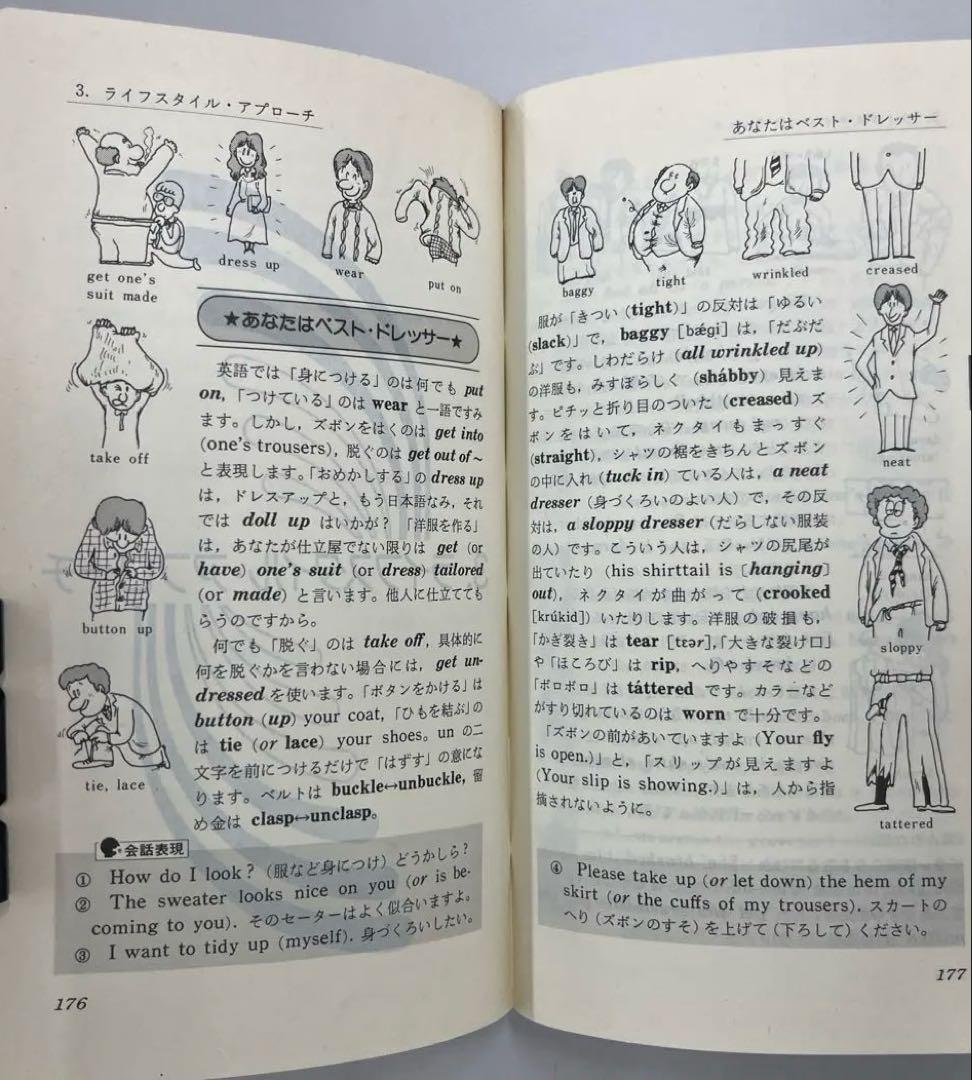 3. ライフスタイル・アプローチ
get one's
suit made
dress up
wear
put on
take off
button up
tie, lace
★あなたはベスト・ドレッサー★
英語では「身につける」のは何でも put
on,「つけている」のは wear と一語ですみ
ます。しかし，ズボンをはくのは get into
(one's trousers)，脱ぐのは get out of～
と表現します。「おめかしする」の dress up
は，ドレスアップと，もう日本語なみ，それ
では doll up はいかが？「洋服を作る」
は，あなたが仕立屋でない限りは get (or
have) one's suit (or dress) tailored
(or made) と言います。他人に仕立てても
らうのですから。
何でも「脱ぐ」のは take off，具体的に
何を脱ぐかを言わない場合には，get un-
dressed を使います。「ボタンをかける」は
button (up) your coat,「ひもを結ぶ」の
は tie (or lace) your shoes. un の二
文字を前につけるだけで「はずす」の意にな
ります。ベルトは buckle↔unbuckle, 留
め金は clasp↔unclasp。
会話表現
① How do I look? (服など身につけ) どうかしら？
② The sweater looks nice on you (or is be-
coming to you). そのセーターはよく似合いますよ。
③ I want to tidy up (myself). 身づくろいしたい。
176
あなたはベスト・ドレッサー
baggy
tight
wrinkled
creased
neat
sloppy
tattered
服が「きつい (tight)」の反対は「ゆるい
(slack)」で，baggy [bǽgi] は，「だぶだ
ぶ」です。しわだらけ (all wrinkled up)
の洋服も，みすぼらしく (shábby) 見えま
す。ピチッと折り目のついた (creased) ズ
ボンをはいて，ネクタイもまっすぐ
(straight)，シャツの裾をきちんとズボン
の中に入れ (tuck in) ている人は，a neat
dresser (身づくろいのよい人) で，その反
対は，a sloppy dresser (だらしない服装
の人) です。こういう人は，シャツの尻尾が
出ていたり (his shirttail is [hanging]
out)，ネクタイが曲がって (crooked
[krúkid]) いたりします。洋服の破損も，
「かぎ裂き」は tear [tɛər],「大きな裂け口」
や「ほころび」は rip，へりやすそなどの
「ボロボロ」は táttered です。カラーなど
がすり切れているのは worn で十分です。
「ズボンの前があいていますよ (Your fly
is open.)」と，「スリップが見えますよ
(Your slip is showing.)」は，人から指
摘されないように。
④ Please take up (or let down) the hem of my
skirt (or the cuffs of my trousers). スカートの
へり (ズボンのすそ) を上げて (下ろして) ください。
177